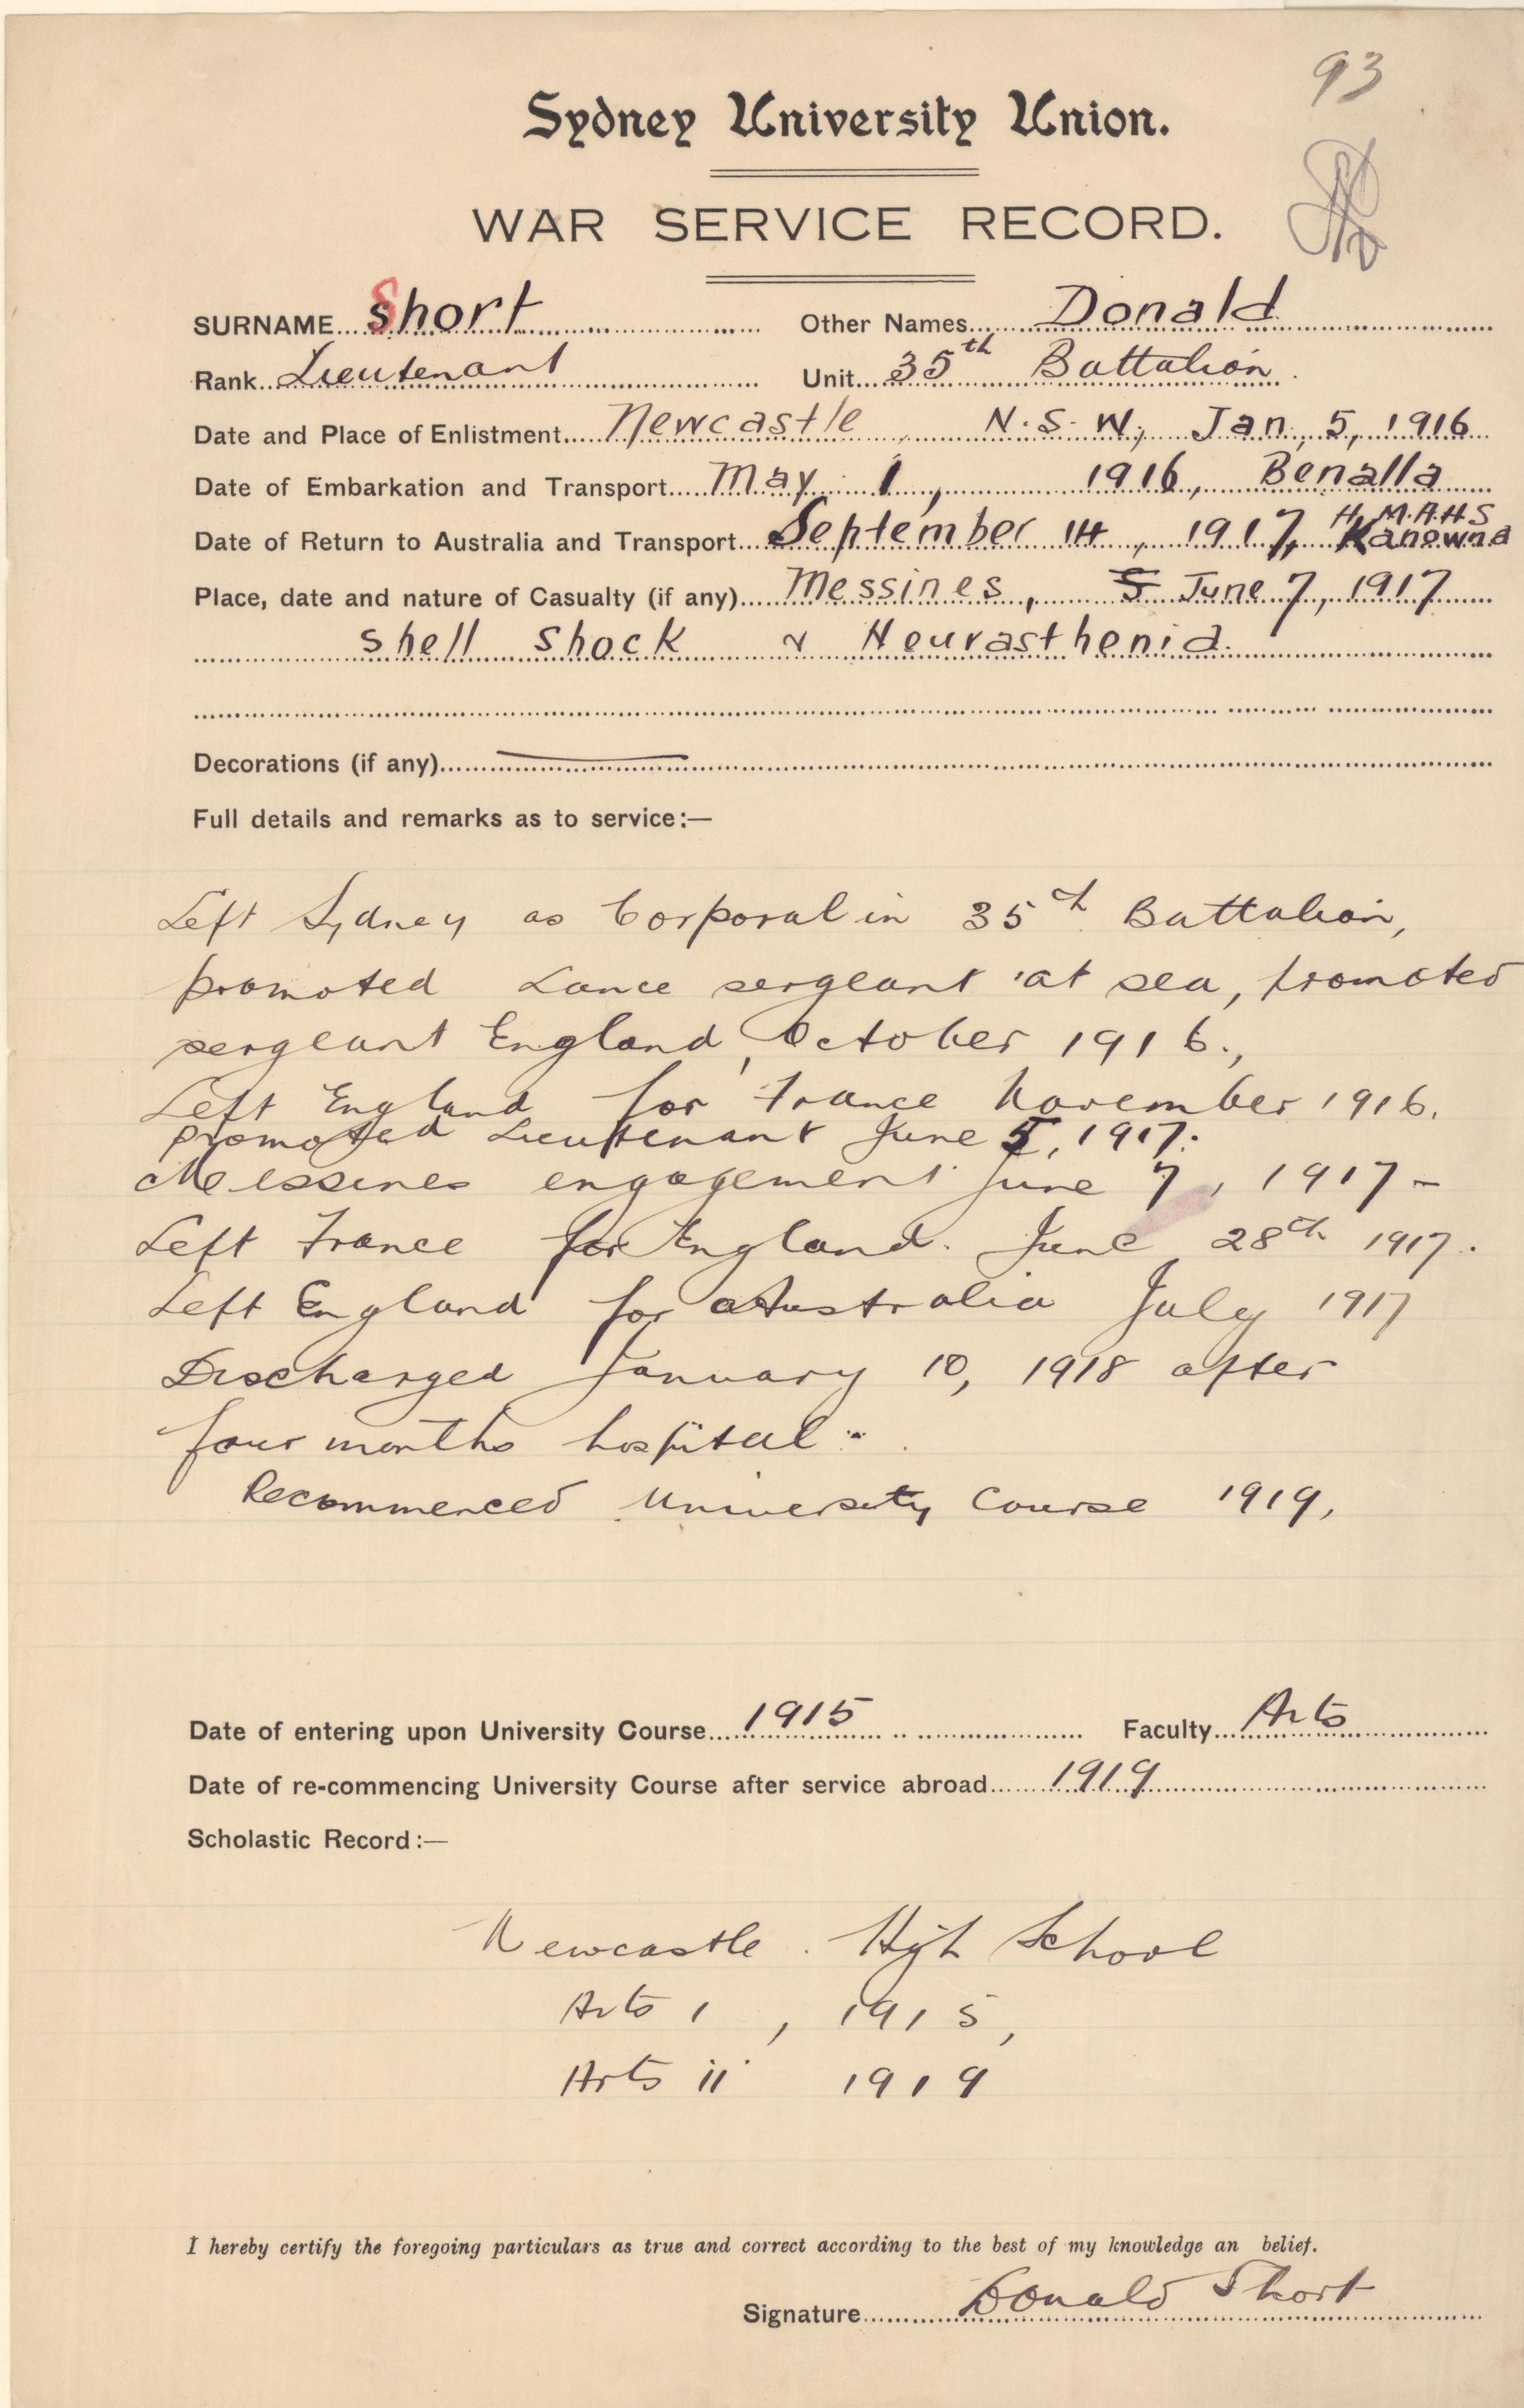 93
Sydney University Union.
WAR SERVICE RECORD.
SURNAME Short Other Names Donald
Rank Lieutenant Unit 35th Battalion
Date and Place of Enlistment Newcastle, N.S.W., Jan, 5, 1916
Date of Embarkation and Transport May 1, 1916, Benalla
H.M.A.H.S
Date of Return to Australia and Transport September 14, 1917, Kanowna
Place, date and nature of Casualty (if any) Messines, 5 June 7, 1917
shell shock & Neurasthenia.
Decorations (if any)
Full details and remarks as to service:—
Left Sydney as Corporal in 35th Battalion,
promoted Lance sergeant at sea, promoted
sergeant England, October 1916.,
Left England for France November 1916.
promoted Lieutenant June 5, 1917.
Messines engagement June 7, 1917 -
Left France for England. June 28th 1917.
Left England for Australia July 1917
Discharged January 10, 1918 after
four months hospital.
Recommenced University Course 1919,
Date of entering upon University Course 1915 Faculty Arts
Date of re-commencing University Course after service abroad 1919
Scholastic Record:—
Newcastle. High School
Arts 1, 1915,
Arts ii 1919
I hereby certify the foregoing particulars as true and correct according to the best of my knowledge an belief.
Signature Donald Short